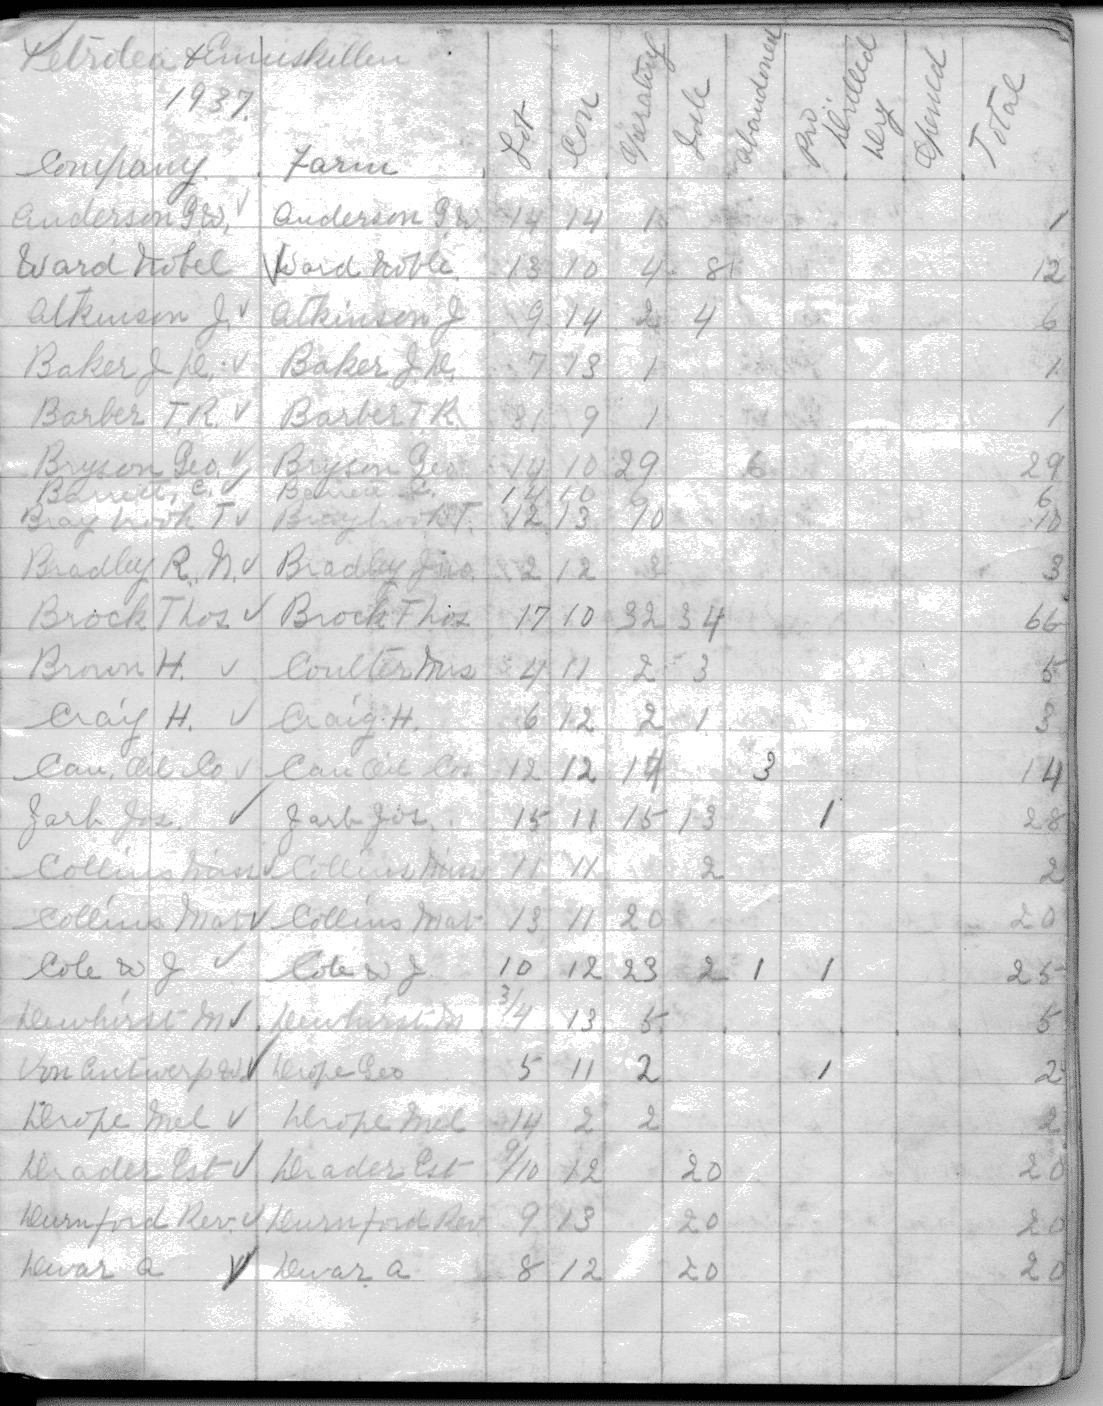 Petrolea & Enniskillen
1937.
Company Farm Lot Con Operating Idle Abandoned Pro Drilled Dry Opened Total
Anderson G.W. ✓ Anderson G.W. 14 14 1 1
Ward Nobel ✓ Ward Noble 13 10 4 8 12
Atkinson J. ✓ Atkinson J 9 14 2 4 6
Baker J. D. ✓ Baker J. D. 7 13 1 1
Barber T.R. ✓ Barber T.R. 31 9 1 1
Bryson Geo ✓ Bryson Geo 14 10 29 6 29
Barrett, C. ✓ Barrett C. 14 10 6 6
Braybrook T ✓ Braybrook T. 12 13 10 10
Bradley R. N. ✓ Bradley Jno. 2 12 3 3
Brock Thos ✓ Brock Thos 17 10 32 34 66
Brown H. ✓ Coulter Mrs 4 11 2 3 5
Craig H. ✓ Craig H. 6 12 2 1 3
Can. Oil Co ✓ Can Oil Co. 12 12 14 3 14
Zarb Jos. ✓ Zarb Jos. 15 11 15 13 1 28
Collins ✓ Collins 11 11 2 2
Collins Mat ✓ Collins Mat 13 11 20 20
Cole W J ✓ Cole W J. 10 12 23 2 1 1 25
Dewhirst M ✓ Dewhirst M 3/4 13 5 5
Van Antwerp W. ✓ Drope Geo 5 11 2 1 2
Drope Mel ✓ Drope Mel 14 2 2 2
Drader Est ✓ Drader Est 9/10 12 20 20
Durnford Rev. ✓ Durnford Rev. 9 13 20 20
Dewar A ✓ Dewar A 8 12 20 20